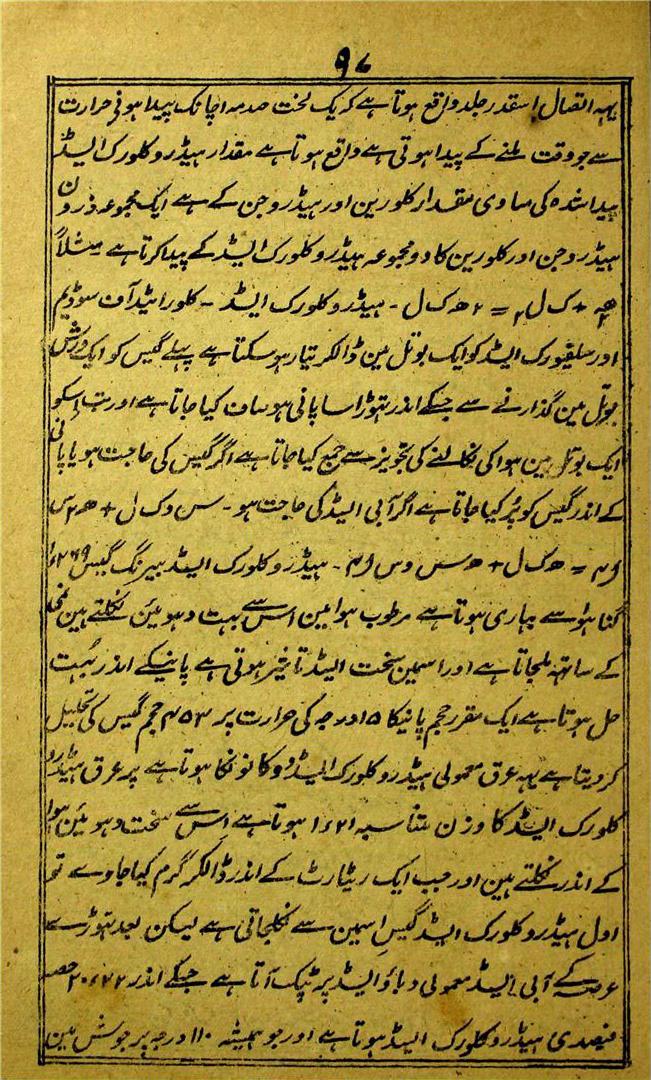 ۹۷
یہہ اتصال اسقدر جلد واقع ہوتا ہے کہ یک لخت صدمہ اچانک پیدا ہونی حرارت
سے جو وقت ملنے کے پیدا ہوتی ہے واقع ہوتا ہے مقدار ہیڈروکلورک ایسڈ
پیدا شدہ کی مساوی مقدار کلورین اور ہیڈروجن کے ہے ایک مجموعہ ذرون
ہیڈروجن اور کلورین کا دو مجموعہ ہیڈروکلورک ایسڈ کے پیدا کرتا ہے مثلاً
ھ۲ + ک ل۲ = ۲ ھ ک ل - ہیڈروکلورک ایسڈ - کلورائیڈ آف سوڈیم
اور سلفیورک ایسڈ کو ایک بوتل مین ڈالکر تیار ہو سکتا ہے پہلے گیس کو ایک
بوتل مین گذارنے سے جسکے اندر تھوڑا سا پانی ہو صاف کیا جاتا ہے اور تب اسکو
ایک بوتل مین ہوا کی نکالنے کی تجویز سے جمع کیا جاتا ہے اگر گیس کی حاجت ہو یا پانی
کے اندر گیس کو پُر کیا جاتا ہے اگر آبی ایسڈ کی حاجت ہو - س و ک ل + ھ۲ س
ا۴ = ھ ک ل + ھ س و س ا۴ - ہیڈروکلورک ایسڈ بیرنگ گیس ۱٫۲۶۹
گنا ہوا سے بہاری ہوتا ہے مرطوب ہوا مین اس سے بہت دہوئین نکلتے ہین نمی
کے ساتھہ ملجاتا ہے اور اسمین سخت ایسڈ تاثیر ہوتی ہے پانیکے اندر بہت
حل ہوتا ہے ایک مقرر حجم پانیکا ۱۵ درجہ کی حرارت پر ۴۵۴ حجم گیس کی تحلیل
کر دیتا ہے یہہ عرق معمولی ہیڈروکلورک ایسڈ دوکانونکا ہوتا ہے پر عرق ہیڈرو
کلورک ایسڈ کا وزن متناسبہ ۱٫۲۱ ہوتا ہے اس سے سخت دہوئین ہوا
کے اندر نکلتے ہین اور جب ایک ریٹارٹ کے اندر ڈالکر گرم کیا جاوے تو
اول ہیڈروکلورک ایسڈ گیس اسمین سے نکلجاتی ہے لیکن بعد تھوڑے
عرصہ کے آبی ایسڈ معمولی دباؤ ایسڈ پر ٹپک آتا ہے جسکے اندر ۲۰٫۲۲ حصہ
فیصدی ہیڈروکلورک ایسڈ ہوتا ہے اور جو ہمیشہ ۱۱۰ درجہ پر جوش مین